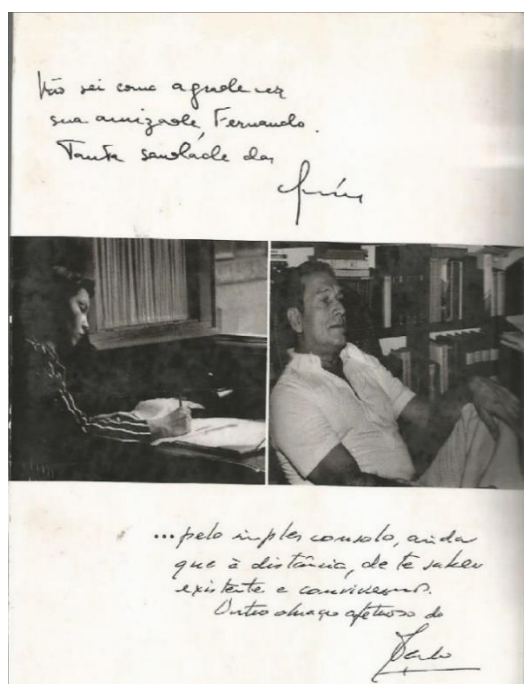 Não sei como agradecer
sua amizade, Fernando.
Tanta saudade da
...pelo simples consolo, ainda
que à distância, de te saber
existente e convivermos.
Outro abraço afetuoso do